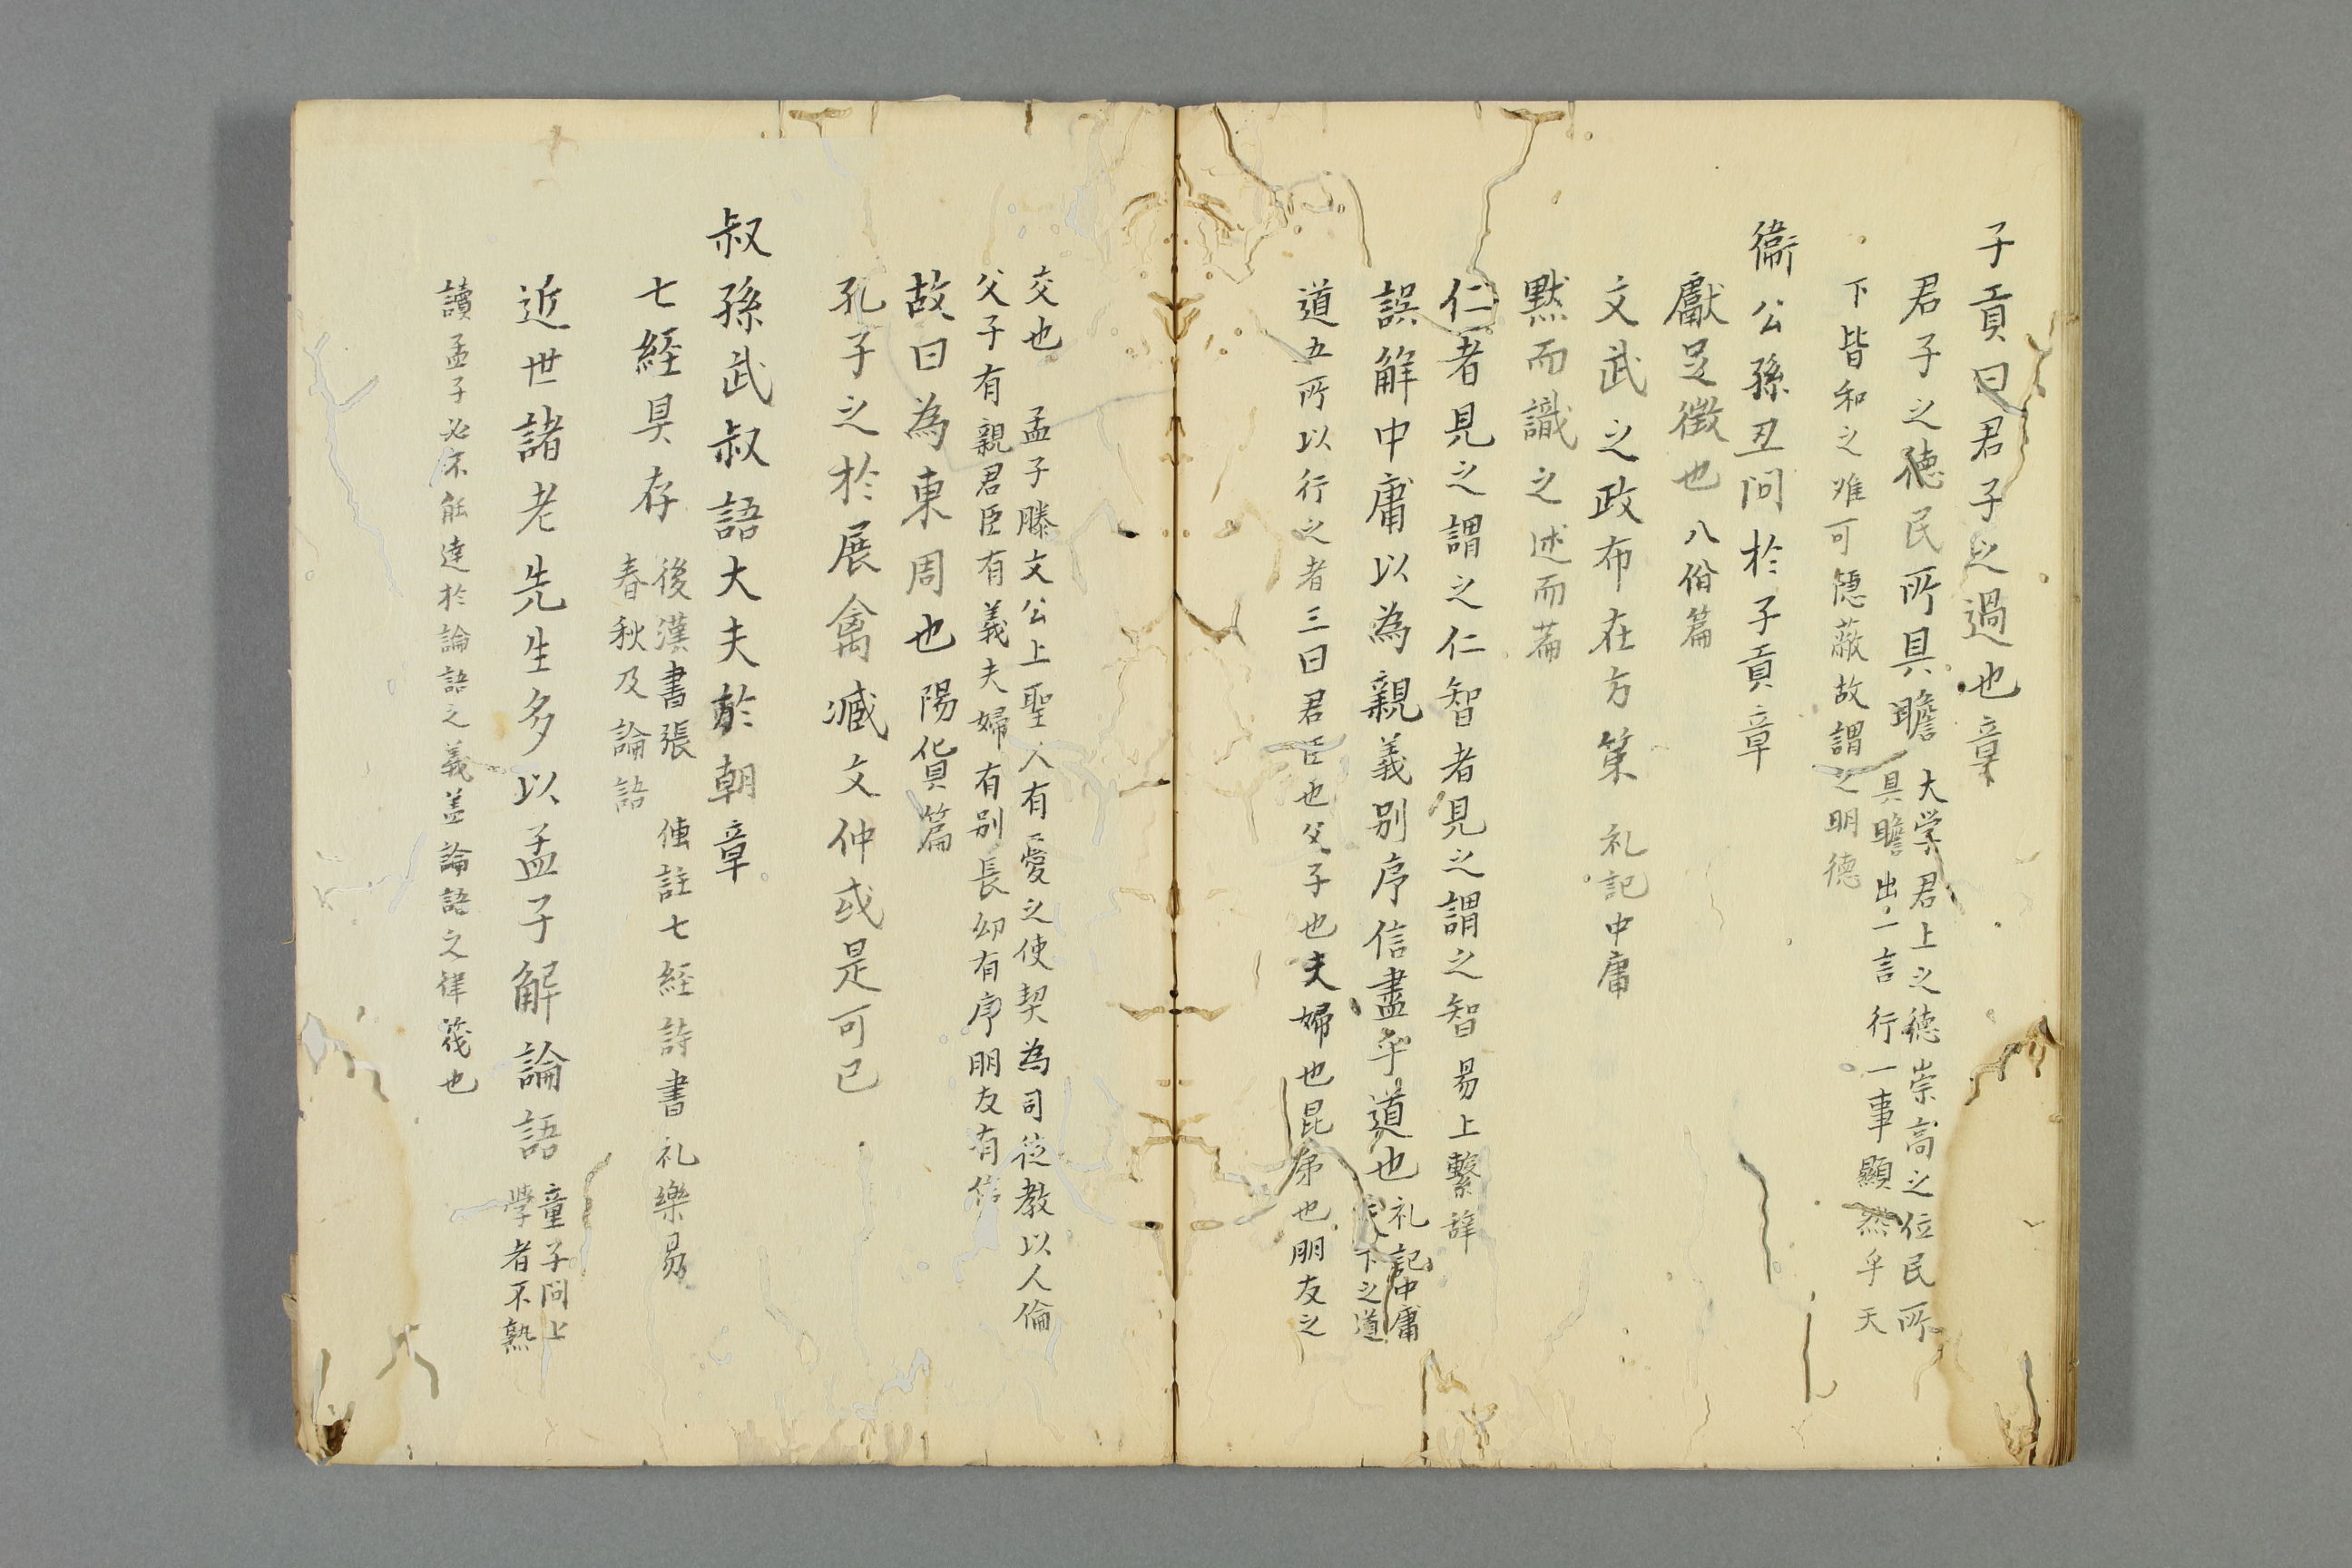 子貢曰君子之過也章
君子之徳民所具瞻 大学君上之徳崇高之位民所
具瞻出一言行一事顯然乎天
下皆和之难可隠蔽故謂之明德
衞公孫丑問於子貢章
獻足徴也 八佾篇
文武之政布在方策 礼記中庸
黙而識之 述而篇
仁者見之謂之仁智者見之謂之智 易上繫辞
誤解中庸以為親義別序信盡乎道也 礼記中庸
下之道
道五所以行之者三曰君臣也父子也夫婦也昆弟也朋友之
交也 孟子滕文公上聖人有憂之使契為司徒教以人倫
父子有親君臣有義夫婦有别長幼有序朋友有信
故曰為東周也 陽貨篇
孔子之於展禽臧文仲或是可已
叔孫武叔語大夫於朝章
七経具存 後漢書張 傳註七経詩書礼樂易
春秋及論語
近世諸老先生多以孟子解論語 童子問上
学者不熟
讀孟子必不能達於論語之義盖論語之律筏也